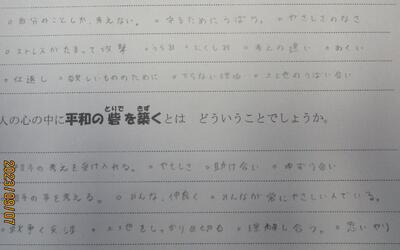 ○自分のことしか、考えない。 ○守るためにうばう。 ○やさしさのなさ
○ストレスがたまって攻撃 ○うらみ ○にくしみ ○考えの違い ○みにくい
○仕返し ○欲しいもののために ○つらない理由 ○土地のうばい合い
人の心の中に平和の砦を築くとは どういうことでしょうか。
とりで きず
相手の考えを受け入れる。 ○やさしさ ○助け合い ○ゆずり合い
相手の事を考える。 ○みんな、仲良く ○みんなが常にやさしい人でいる。
○戦争く反対 をしっかり ○理解し合う。 ○思いやり
2023/09/07